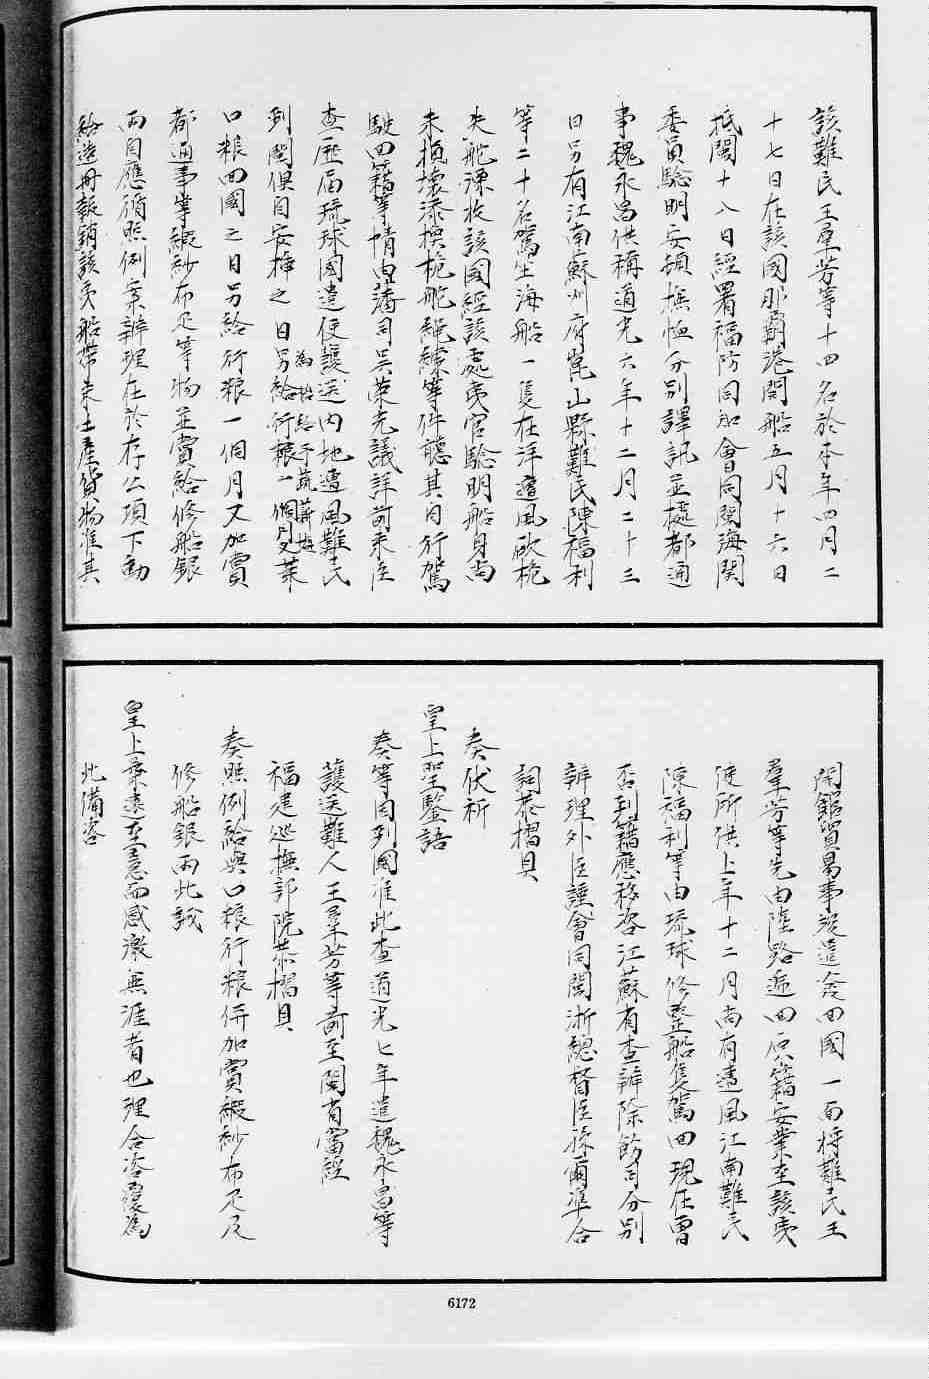 該難民王羣芳等十四名於本年四月二
十七日在該國那霸港開船五月十六日
抵閩十八日經署福防同知會同閩海関
委員驗明安頓撫恤分別譯訊並據都通
事魏永昌供稱道光六年十二月二十三
日另有江南蘇州府崑山縣難民陳福利
等二十名駕坐海船一隻在洋遭風砍桅
失舵漂收該國經該處夷官驗明船身尚
未損壞添換桅舵繩繚等件聽其自行駕
駛回籍等情由藩司吳榮光議詳前來臣
查歷届琉球國遣使護送内地遭風難民
到閩俱自安揷之日另給行糧一個月又
為始給予蔬薪
口粮回國之日另給行粮一個月又加賞
都通事等緞紗布疋等物並賞給修船銀
兩自應循照例案辦理在於存公項下動
給造册報銷該夷船帶来土產貨物准其
開館貿易事竣遣令回國一面將難民王
羣芳等先由陸路逓回原籍安業至該夷
使所供上年十二月尚有遭風江南難民
陳福利等由琉球修整船隻駕回現在曽
否到籍應移咨江蘇省查辦除飭司分別
辦理外臣謹會同閩浙總督臣孫爾準合
詞恭摺具
奏伏祈
皇上聖鑒語
奏等因到國准此查道光七年遣魏永昌等
護送難人王羣芳等前至閩省當經
福建巡撫部院恭摺具
奏照例給與口粮行粮併加賞緞紗布疋及
修船銀兩此誠
皇上柔遠至意而感激無涯者也理合咨覆為
此備咨
6172